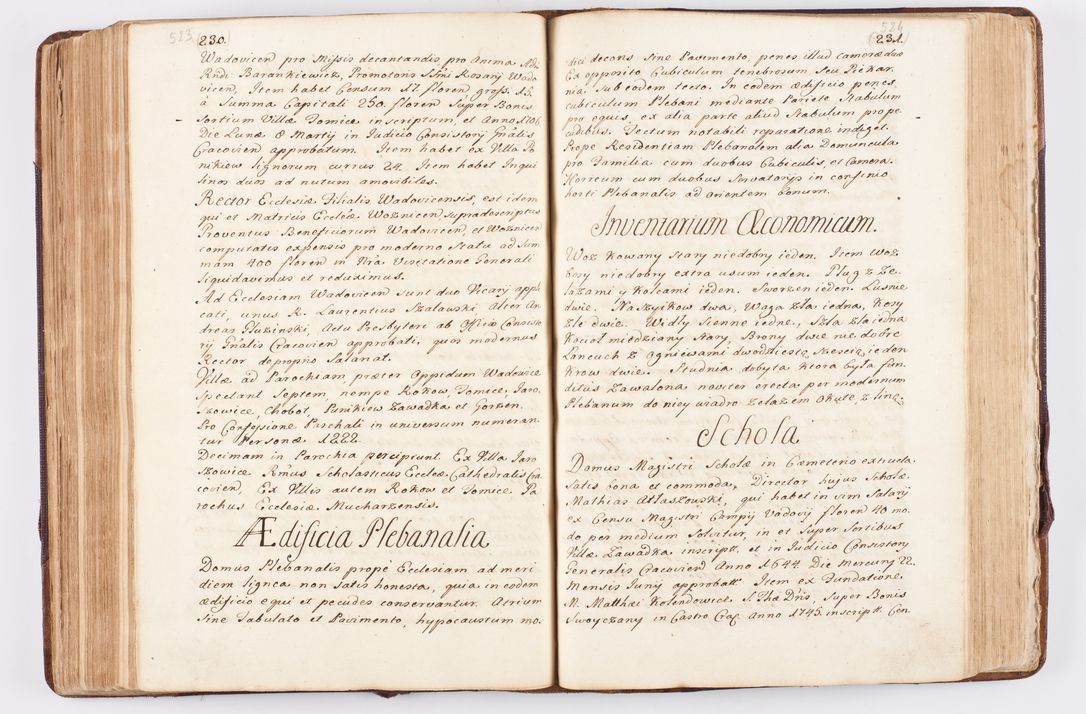 523
230.
Wadovicen pro Missis decantandis pro Anima Adm
Rndi Barankiewicz, Promotoris SSmi Rosarij Wado
vicen, Item habet Censum 17. floren, gross. 15.
à Summa Capitali 250. floren Super Bonis
Sortium Villæ Tomice inscriptum, et Anno 1706.
Die Lunæ 8 Martij in Iudicio Consistorij Gnâlis
Cracovien approbatum. Item habet ex Villa Po
nikiew lignorum currus 24. Item habet Inqui
linos duos ad nutum amovibiles.
Rector Ecclesiæ Filialis Wadovicensis, est idem
qui et Matricis Eccleæ Woznicen Supradescriptus
Proventus Beneficiorum Wadovicen, et Woznicen
computatis expensis pro moderno Statu ad Sum
mam 400 floren in Nra Visitatione Generali
liquidavimus et reduximus.
Ad Ecclesiam Wadovicen sunt duo Vicarij appli
cati, unus R. Laurentius Szalawski, Alter An
dreas Gluzinski, Actu Presbyteri ab Officio Consisto
rij Gnâlis Cracovien approbati, quos modernus
Rector de proprio Salariat.
Villæ ad Parochiam, præter Oppidum Wadowice
Spectant Septem, nempe Rokow, Tomice, Jaro
szowice, Chobot, Ponikiew Zawadka et Gorzen.
Pro Confessione Paschali in universum numeran
tur Personæ 1222.
Decimam in Parochia percipiunt Ex Villa Jaro
szowice Rmus Scholasticus Eccleæ Cathedralis Cra
covien, Ex Villis autem Rokow et Tomice Pa
rochus Ecclesiæ Mucharzensis.
Ædificia Plebanalia
Domus Plebanalis propè Ecclesiam ad meri
diem lignea non satis honesta, quia in eodem
ædificio equi et pecudes conservantur. Atrium
sine Tabulato et Pavimento, hypocaustum mo.
524
231.
dici decoris sine Pavimento, penes illud camoræ duæ
Ex opposito Cubiculum tenebrosum, seu Piekar
nia sub eodem tecto. In eodem ædificio penes
cubiculum Plebani mediante Pariete Stabulum
pro equis, ex alia parte aliud Stabulum pro pe
cudibus. Tectum notabili reparatione indiget.
Prope Residentiam Plebanalem alia Domuncula
pro Familia cum duobus Cubiculis, et Camora.
Horreum cum duobus Servatorijs in confinio
horti Plebanalis ad orientem bonum.
Inventarium Œconomicum.
Woz kowany stary niedobry ieden. Item Woz
bosy niedobry extra usum ieden. Plug z Ze-
lazami y Kolcami ieden. Sworzen ieden. Lusnie
dwie. Naszyikow dwa, Waga zła iedna, Kosy
złe dwie. Widly sienne iedne, Szla zła iedna
Kociol miedziany stary, Brony dwie nie dobre
Lancuch z ogniewami dwodziestą szescią ieden
Krow dwie. Studnia dobyta ktora była fun
ditus Zawalona noviter erecta per modernum
Plebanum do niey wiadro Zelazem okute, z liną.
Schola
Domus Magistri Scholæ in Cæmeterio extructa
satis bona et commoda, Director hujus Scholæ
Mathias Atlaszowski, qui habet in vim Salarij
ex Censu Magistri Campij Vadovij floren 40 mo.
do per medium Solvitur, in et super Sortibus
Villæ Zawadka inscriptt, et in Iudicio Consistorij
Generalis Cracovien Anno 1644 Die Mercurij 22.
Mensis Iunij approbatt. Item ex Fundatione
M. Matthæi Kolendowicz S. Thæ Dris, super Bonis
Swoyczany in Castro Crac. Anno 1745. inscriptt. Cen.